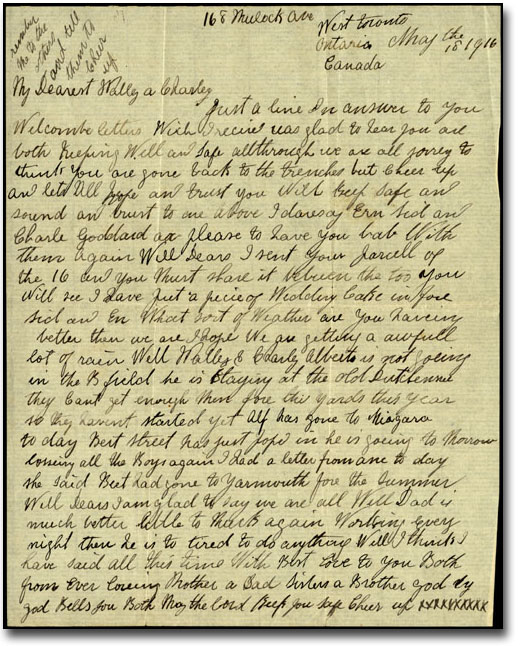 168 Mulock Ave
West Toronto
Ontario May the 18 1916
Canada
remember
me to the
and tell
them to
Cheer
up
My Dearest Wally a Charley
Just a line In answer to you
Welcombe letters Wich I recive was glad to hear you are
both Keeping Well an Safe allthrough we are all sorrey to
think You are gone back to the trenches but Cheer up
and lets All hope an trust you Will Keep Safe and
sound an trust to one above I daresay Ern Sid an
Charle Goddard are please to have you bak With
them again Well Dears I sent Your parcell of
the 16 an you Must share it between the too You
Will see I have put a peice of Wedding Cake in fore
Sid an Ern What Sort of Weather are You haveing
better then we are I hope We are getting a awfull
lot of rain Well Walley & Charley Albert is not going
in the B field he is Staying at the old
they Cant get enough Men fore this yards this Year
so they havent started yet Alf has gone to Niagara
to day Bert Street has just in he is going to Morrow
looseing all the Boys again I had a letter from to day
she Said Bert had gone to Yarmouth fore the Summer
Well Dears I am glad to say we are all Well Dad is
much better little to back again Working Every
night then he is to tired to do anything Well I think I
have said all this time With Best Love to You Both
from Ever Loveing Mother a Dad Sisters a Brother God by
god Bells you Both May the Lord Keep you safe Cheer up xxxxxxxxx